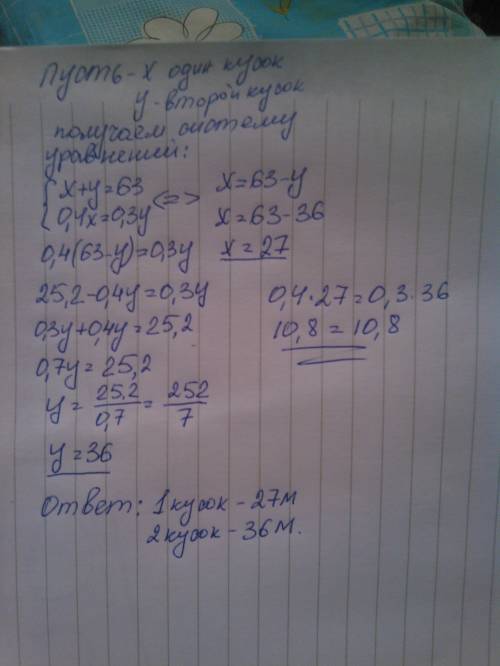 Пусть - x один кусок
y - второй кусок
получаем систему
уравнений:
{x+y=63
{0,4x=0,3y <=>
0,4(63-y)=0,3y
25,2-0,4y=0,3y
0,3y+0,4y=25,2
0,7y=25,2
y = 25,2/0,7 = 252/7
y=36
x=63-y
x=63-36
x=27
0,4·27=0,3·36
10,8=10,8
Ответ: 1 кусок - 27м
2 кусок - 36м.